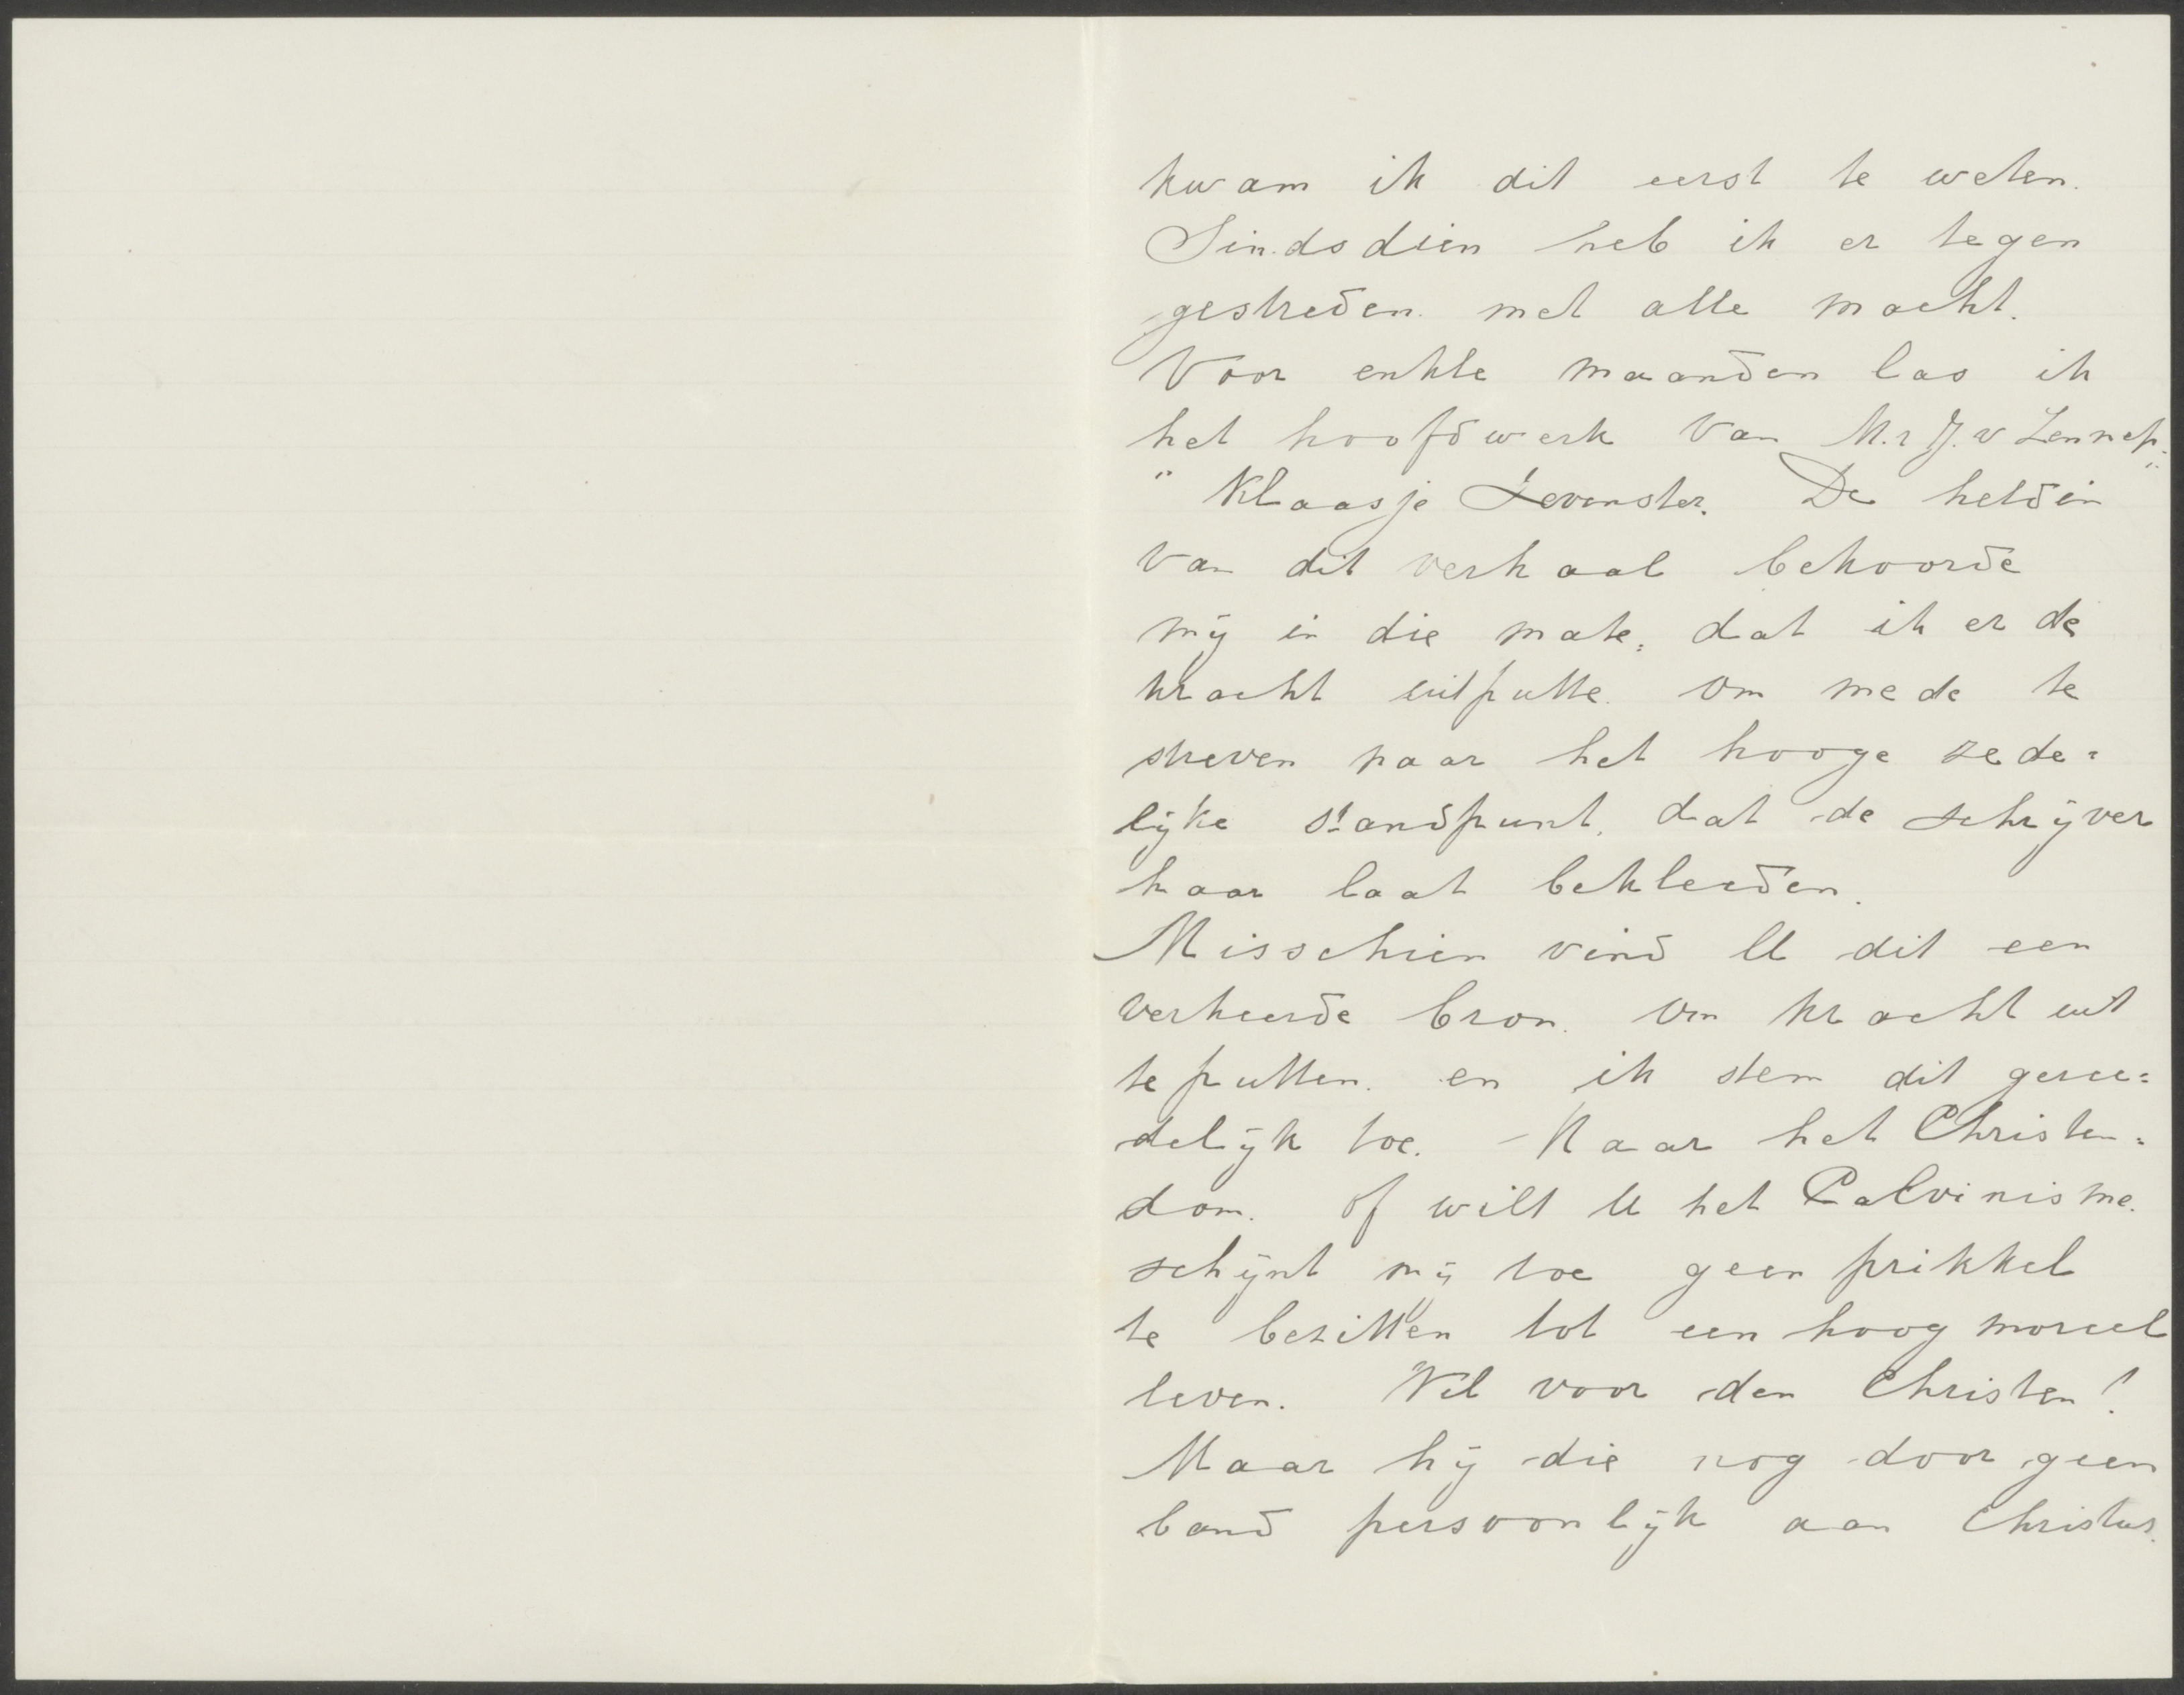 kwam ik dit eerst te weten.
Sindsdien heb ik er tegen
gestreden met alle macht.
Voor enkle maanden las ik
het hoofdwerk van M.r J. v Lennep:
" Klaasje Zevenster." De heldin
van dit verhaal bekoorde
mij in die mate, dat ik er de
kracht uitputte om mede te
streven naar het hooge zede=
lijke standpunt, dat de schrijver
haar laat bekleeden.
Misschien vind U dit een
verkeerde bron om kracht uit
te putten en ik stem dit geree=
delijk toe. – Maar het Christen=
dom. of wilt U het Calvinisme.
schijnt mij toe geen prikkel
te bezitten tot een hoog moreel
leven. Wel voor den Christen!
Maar hij die nog door geen
band persoonlijk aan Christus.